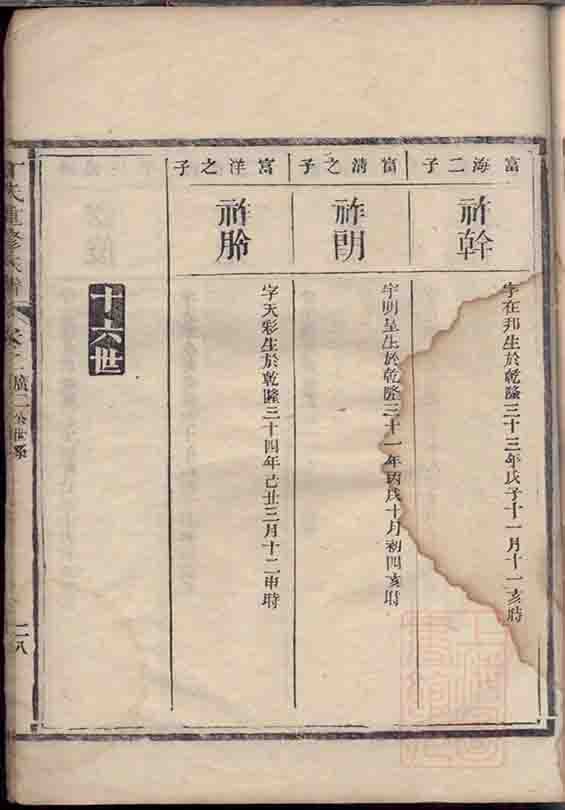 富海二子
祚幹
字在邦生於乾隆三十三年戊子十一月十一亥時
富淸之子
祚朗
字明呈生於乾隆三十一年丙戌十月初四亥時
富洋之子
祚朎
字天彩生於乾隆三十四年己丑三月十二申時
十六世
重修氏譜
卷之二廣二公世系
二八